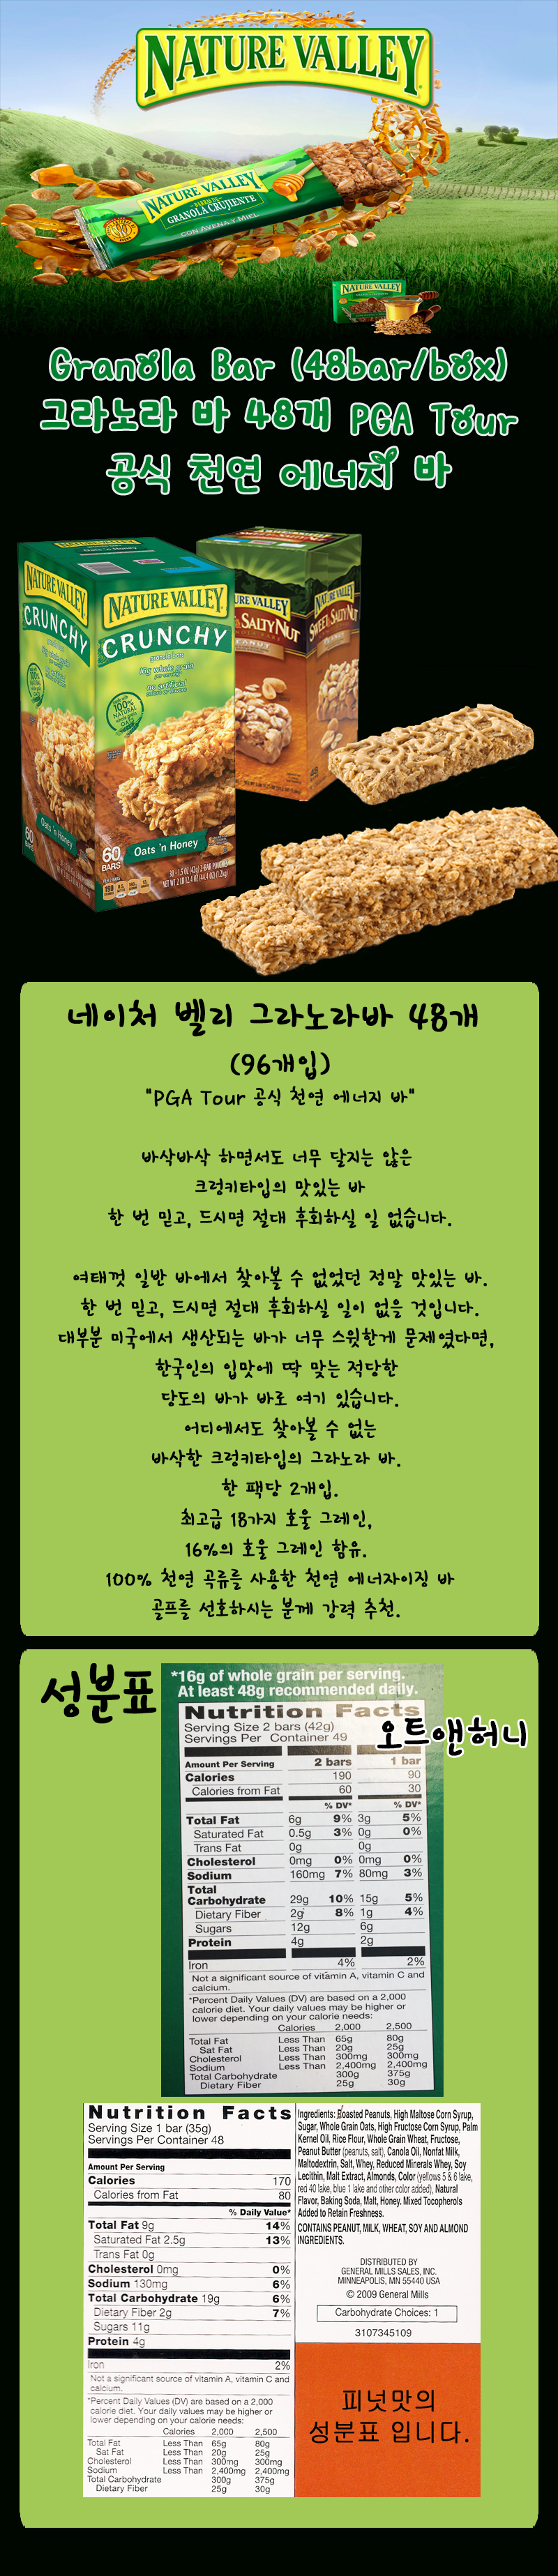 NATURE VALLEY
NATURE VALLEY
GRANOLA CRUJIENTE
CON AVENA Y MIEL
NATURE VALLEY
Granola Bar (48bar/box)
그라노라 바 48개 PGA Tour
공식 천연 에너지 바
NATURE VALLEY
CRUNCHY
NATURE VALLEY
CRUNCHY
granola bars
16g whole grain
per serving
no artificial
colors or flavors
100%
NATURAL
60
BARS
Oats 'n Honey
60
BARS
Oats 'n Honey
NATURE VALLEY
SWEET & SALTY NUT
네이처 벨리 그라노라바 48개
(96개입)
"PGA Tour 공식 천연 에너지 바"
바삭바삭 하면서도 너무 달지는 않은
크렁키타입의 맛있는 바
한 번 믿고, 드시면 절대 후회하실 일 없습니다.
여태껏 일반 바에서 찾아볼 수 없었던 정말 맛있는 바.
한 번 믿고, 드시면 절대 후회하실 일이 없을 것입니다.
대부분 미국에서 생산되는 바가 너무 스윗한게 문제였다면,
한국인의 입맛에 딱 맞는 적당한
당도의 바가 바로 여기 있습니다.
어디에서도 찾아볼 수 없는
바삭한 크렁키타입의 그라노라 바.
한 팩당 2개입.
최고급 18가지 호울 그레인,
16%의 호울 그레인 함유.
100% 천연 곡류를 사용한 천연 에너자이징 바
골프를 선호하시는 분께 강력 추천.
성분표
*16g of whole grain per serving.
At least 48g recommended daily.
Nutrition Facts
오트앤허니
Serving Size 2 bars (42g)
Servings Per Container 49
Amount Per Serving 2 bars 1 bar
Calories 190 90
Calories from Fat 60 30
% DV* % DV*
Total Fat 6g 9% 3g 5%
Saturated Fat 0.5g 3% 0g 0%
Trans Fat 0g 0g
Cholesterol 0mg 0% 0mg 0%
Sodium 160mg 7% 80mg 3%
Total
Carbohydrate 29g 10% 15g 5%
Dietary Fiber 2g 8% 1g 4%
Sugars 12g 6g
Protein 4g 2g
Iron 4% 2%
Not a significant source of vitamin A, vitamin C and
calcium.
*Percent Daily Values (DV) are based on a 2,000
calorie diet. Your daily values may be higher or
lower depending on your calorie needs:
Calories 2,000 2,500
Total Fat Less Than 65g 80g
Sat Fat Less Than 20g 25g
Cholesterol Less Than 300mg 300mg
Sodium Less Than 2,400mg 2,400mg
Total Carbohydrate 300g 375g
Dietary Fiber 25g 30g
Nutrition Facts
Serving Size 1 bar (35g)
Servings Per Container 48
Amount Per Serving
Calories 170
Calories from Fat 80
% Daily Value*
Total Fat 9g 14%
Saturated Fat 2.5g 13%
Trans Fat 0g
Cholesterol 0mg 0%
Sodium 130mg 6%
Total Carbohydrate 19g 6%
Dietary Fiber 2g 7%
Sugars 11g
Protein 4g
Iron 2%
Not a significant source of vitamin A, vitamin C and
calcium.
*Percent Daily Values (DV) are based on a 2,000
calorie diet. Your daily values may be higher or
lower depending on your calorie needs:
Calories 2,000 2,500
Total Fat Less Than 65g 80g
Sat Fat Less Than 20g 25g
Cholesterol Less Than 300mg 300mg
Sodium Less Than 2,400mg 2,400mg
Total Carbohydrate 300g 375g
Dietary Fiber 25g 30g
Ingredients: Roasted Peanuts, High Maltose Corn Syrup,
Sugar, Whole Grain Oats, High Fructose Corn Syrup, Palm
Kernel Oil, Rice Flour, Whole Grain Wheat, Fructose,
Peanut Butter (peanuts, salt), Canola Oil, Nonfat Milk,
Maltodextrin, Salt, Whey, Reduced Minerals Whey, Soy
Lecithin, Malt Extract, Almonds, Color (yellows 5 & 6 lake,
red 40 lake, blue 1 lake and other color added), Natural
Flavor, Baking Soda, Malt, Honey. Mixed Tocopherols
Added to Retain Freshness.
CONTAINS PEANUT, MILK, WHEAT, SOY AND ALMOND
INGREDIENTS.
DISTRIBUTED BY
GENERAL MILLS SALES, INC.
MINNEAPOLIS, MN 55440 USA
© 2009 General Mills
Carbohydrate Choices: 1
3107345109
피넛맛의
성분표 입니다.